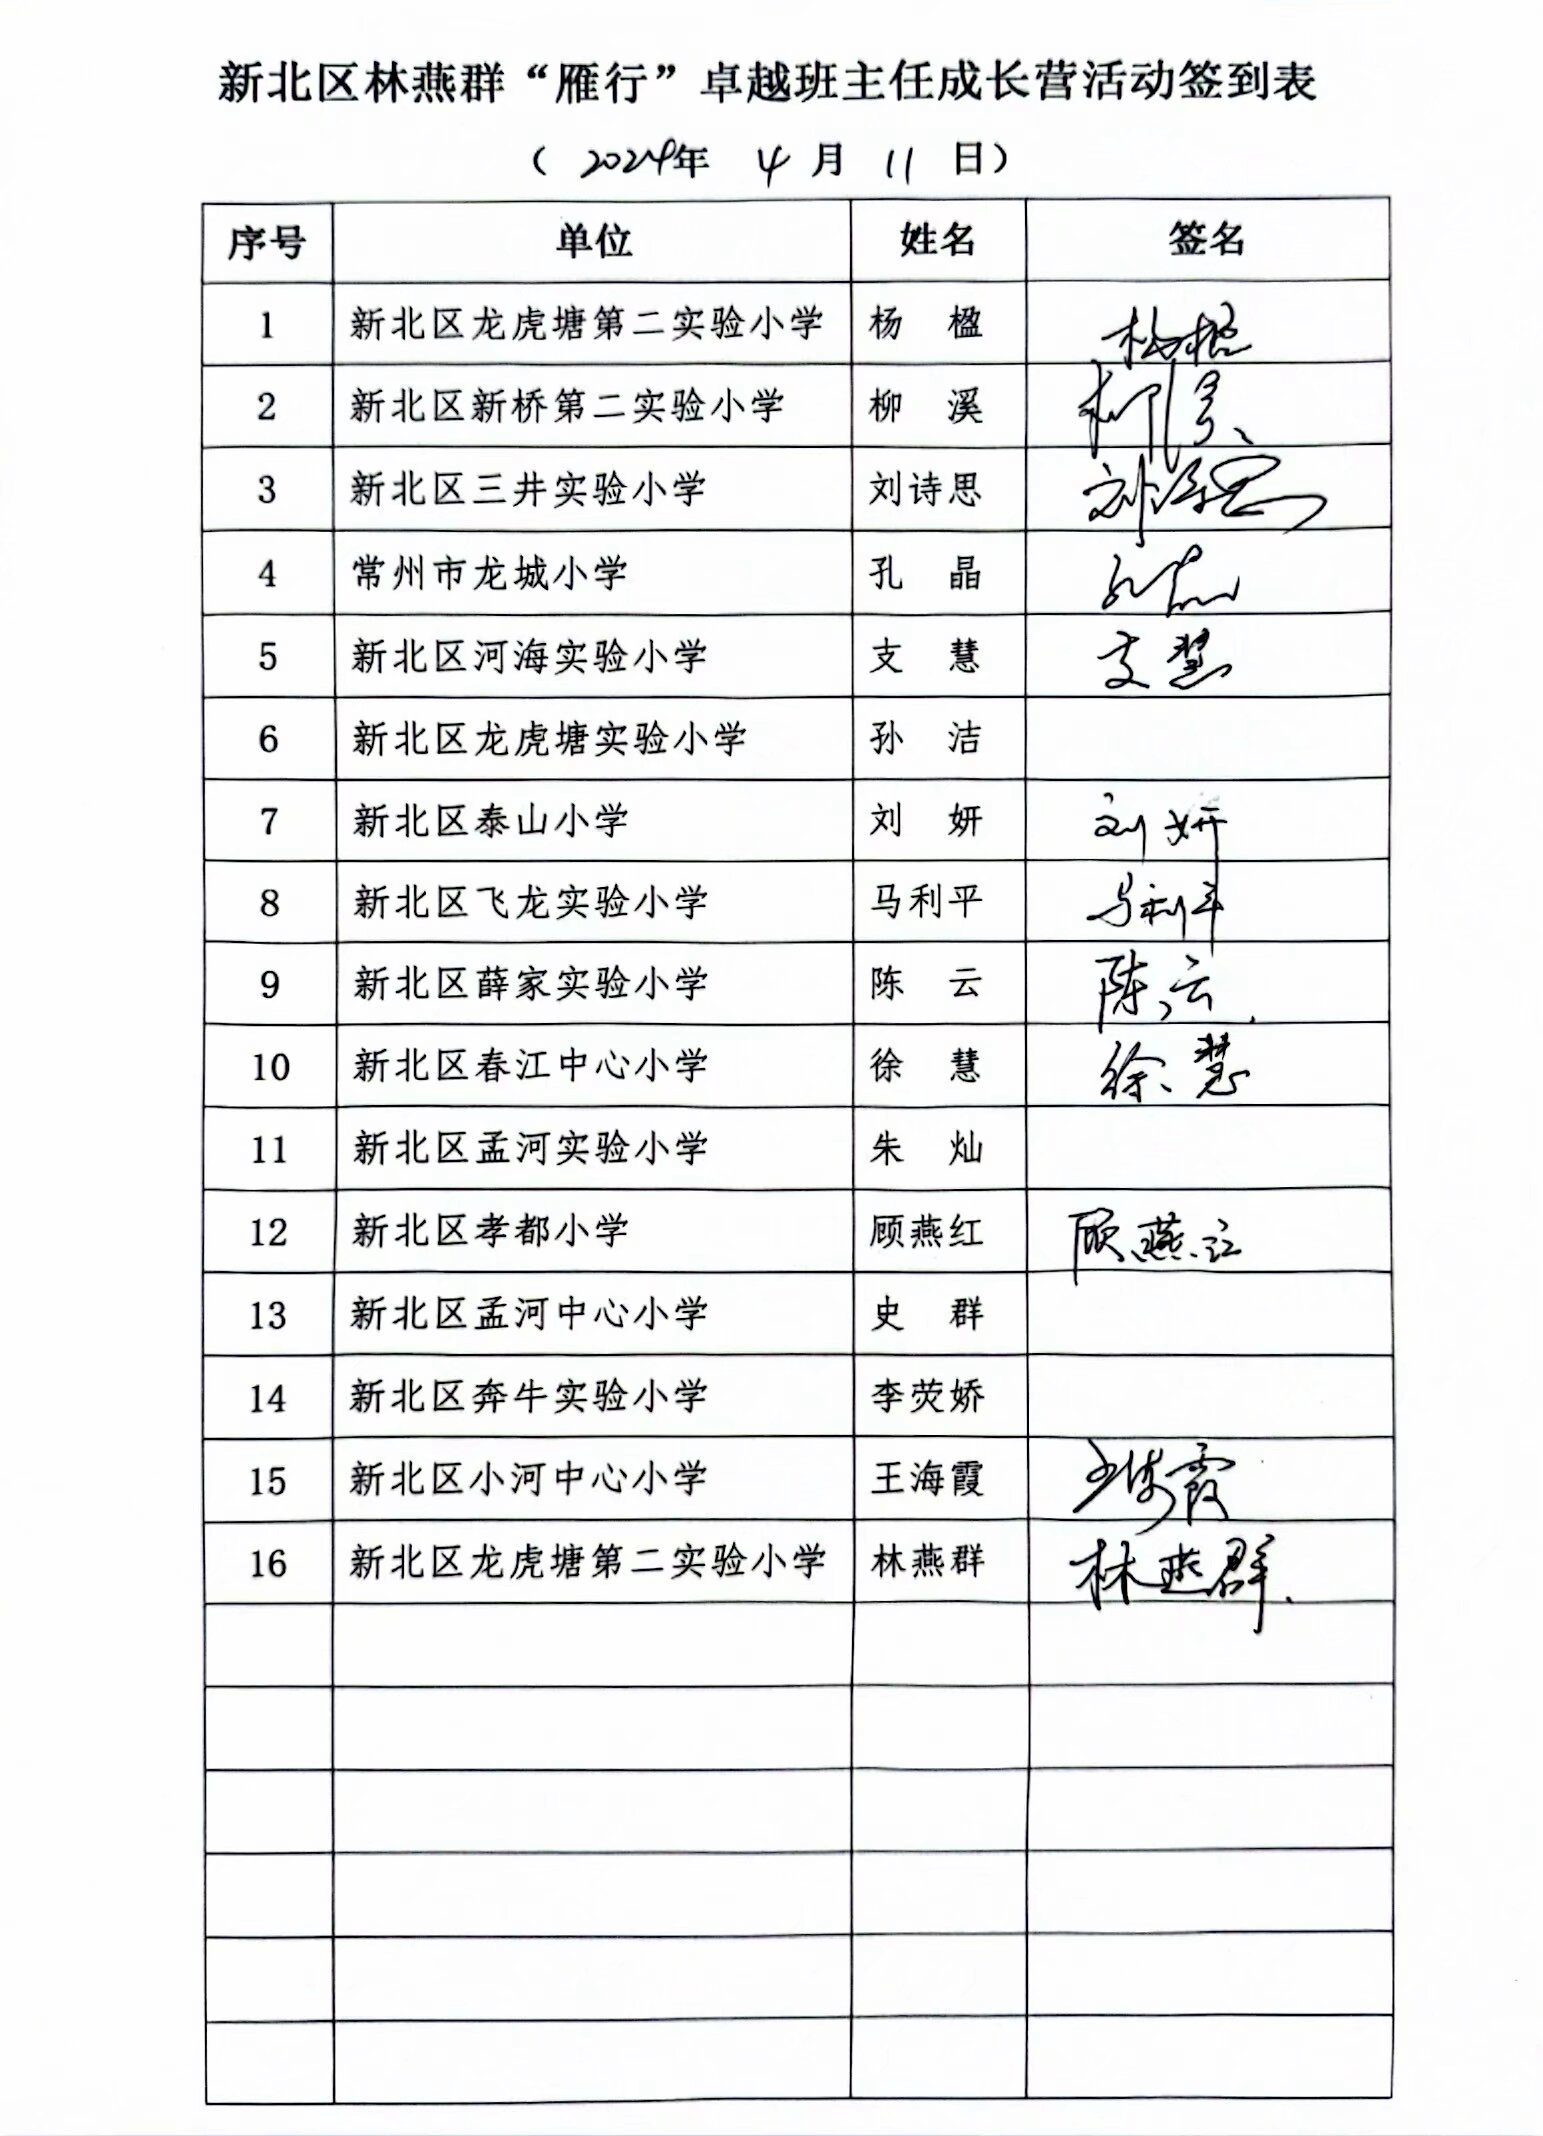 新北区林燕群“雁行”卓越班主任成长营活动签到表
（ 2024年 4 月 11 日）
序号 单位 姓名 签名
1 新北区龙虎塘第二实验小学 杨 楹 杨楹
2 新北区新桥第二实验小学 柳 溪 柳溪
3 新北区三井实验小学 刘诗思 刘诗思
4 常州市龙城小学 孔 晶 孔晶
5 新北区河海实验小学 支 慧 支慧
6 新北区龙虎塘实验小学 孙 洁
7 新北区泰山小学 刘 妍 刘妍
8 新北区飞龙实验小学 马利平 马利平
9 新北区薛家实验小学 陈 云 陈云
10 新北区春江中心小学 徐 慧 徐慧
11 新北区孟河实验小学 朱 灿
12 新北区孝都小学 顾燕红 顾燕红
13 新北区孟河中心小学 史 群
14 新北区奔牛实验小学 李荧娇
15 新北区小河中心小学 王海霞 王海霞
16 新北区龙虎塘第二实验小学 林燕群 林燕群